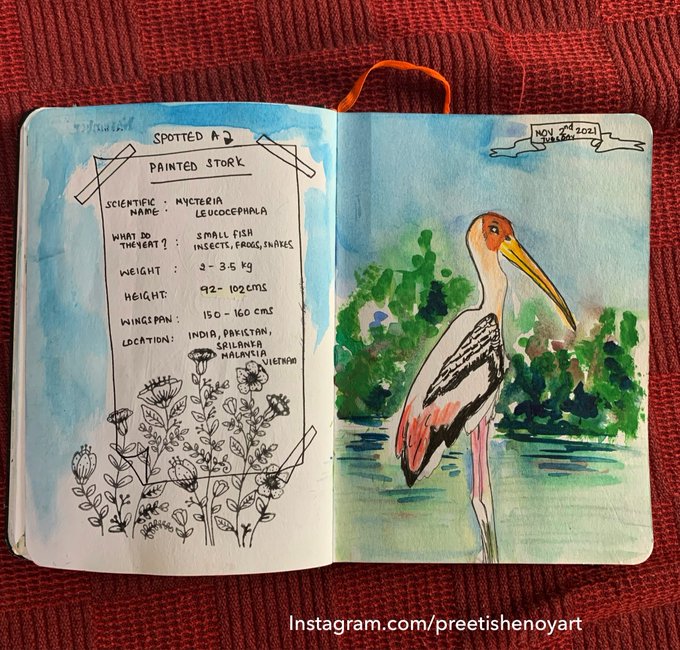 SPOTTED A
PAINTED STORK
SCIENTIFIC NAME : MYCTERIA LEUCOCEPHALA
WHAT DO THEY EAT? : SMALL FISH INSECTS, FROGS, SNAKES
WEIGHT : 2 - 3.5 kg
HEIGHT: 92 - 102 cms
WINGSPAN : 150 - 160 cms
LOCATION: INDIA, PAKISTAN,
SRILANKA
MALAYSIA
VIETNAM
NOV 2nd 2021
TUESDAY
Instagram.com/preetishenoyart